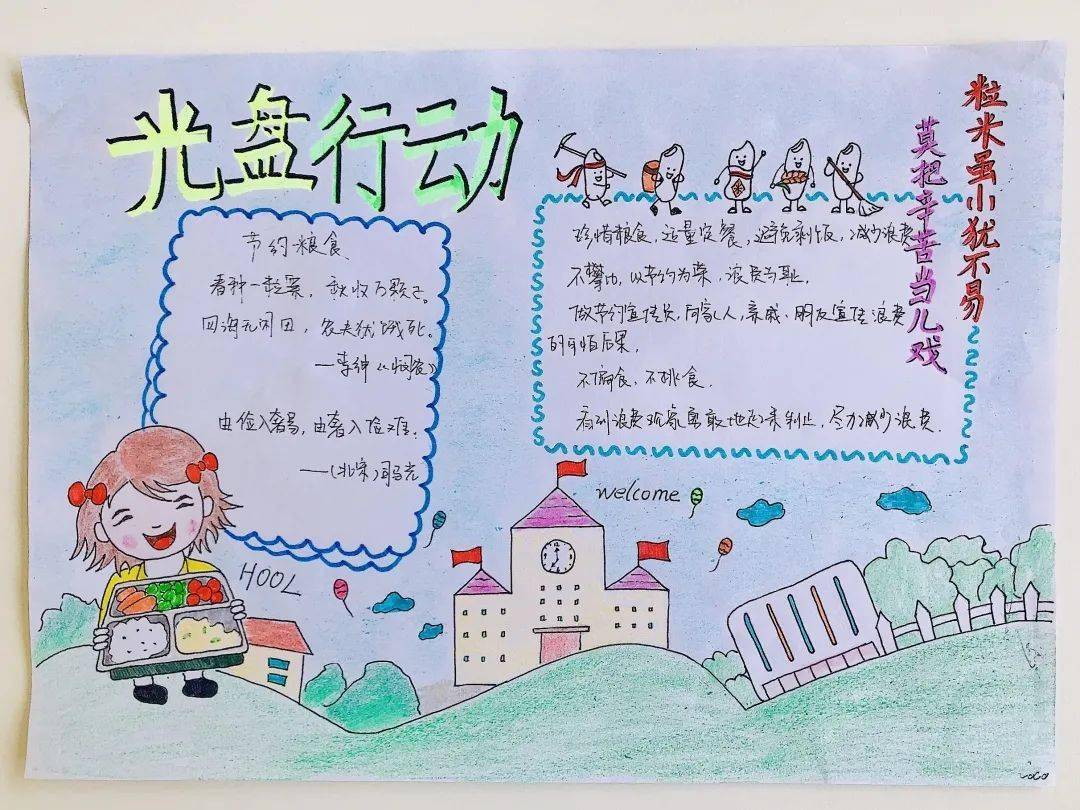 光盘行动
粒米虽小犹不易
莫把辛苦当儿戏
节约粮食
春种一粒粟，秋收万颗子。
四海无闲田，农夫犹饿死。
——李绅《悯农》
由俭入奢易，由奢入俭难。
——（北宋）司马光
珍惜粮食，适量定餐，避免剩饭，减少浪费
不攀比，以节约为荣，浪费为耻。
做节约宣传员，向家人，亲戚、朋友宣传浪费
的可怕后果。
不偏食，不挑食．
看到浪费现象勇敢地起来制止，尽力减少浪费．
welcome
HOOL